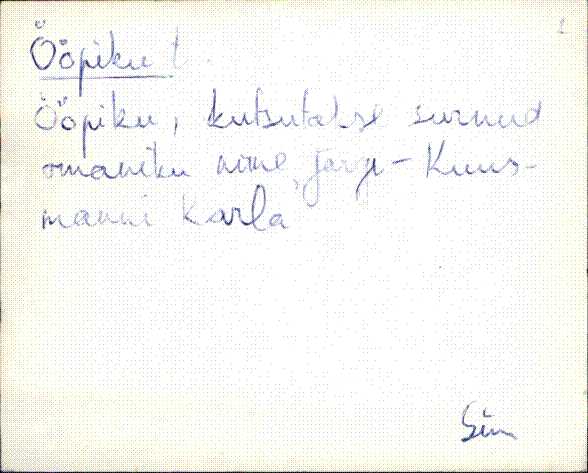 Ööpiku t.
Ööpiku, kutsutakse surnud
omaniku nime järgi - Kuus-
manni Karla
Sim